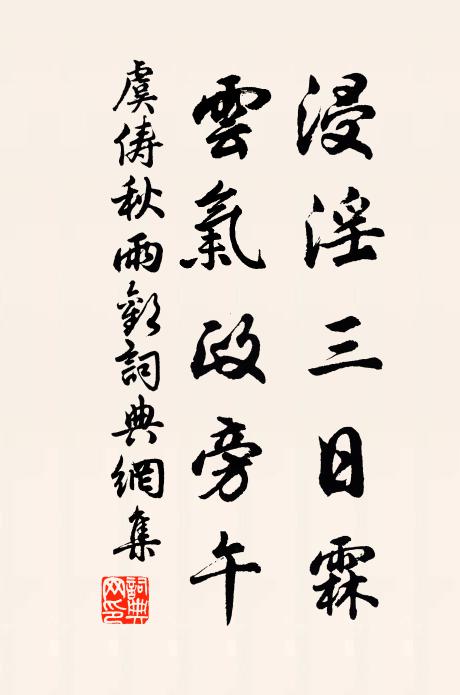 浸淫三日霖
雲氣政旁午
虞儔秋雨歎詞典網集
詞典網印